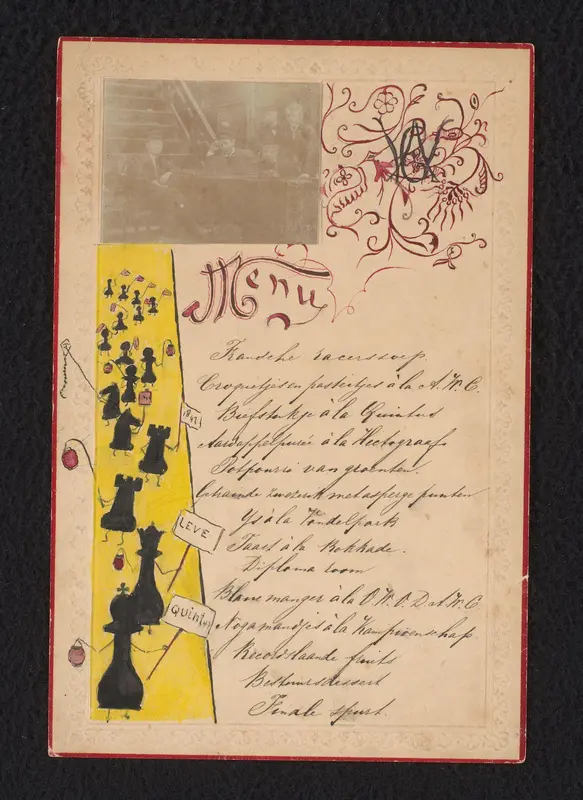 Menu
Fransche racerssoep.
Croquetjes en pasteitjes à la A.W.C.
Biefstukje à la Quintus
Aardappelpurée à la Hectograaf
Potpourri van groenten.
met asperge punten
Ys à la Vondelpark
Taart à la Blokkade.
Diploma room
Blanc manger à la O.W.O.D.A.W.C
Nogamandjes à la Kampioenschap
Recordslaande fruits
Bestuursdessert
Finale spurt.
LEVE
QUINTUS